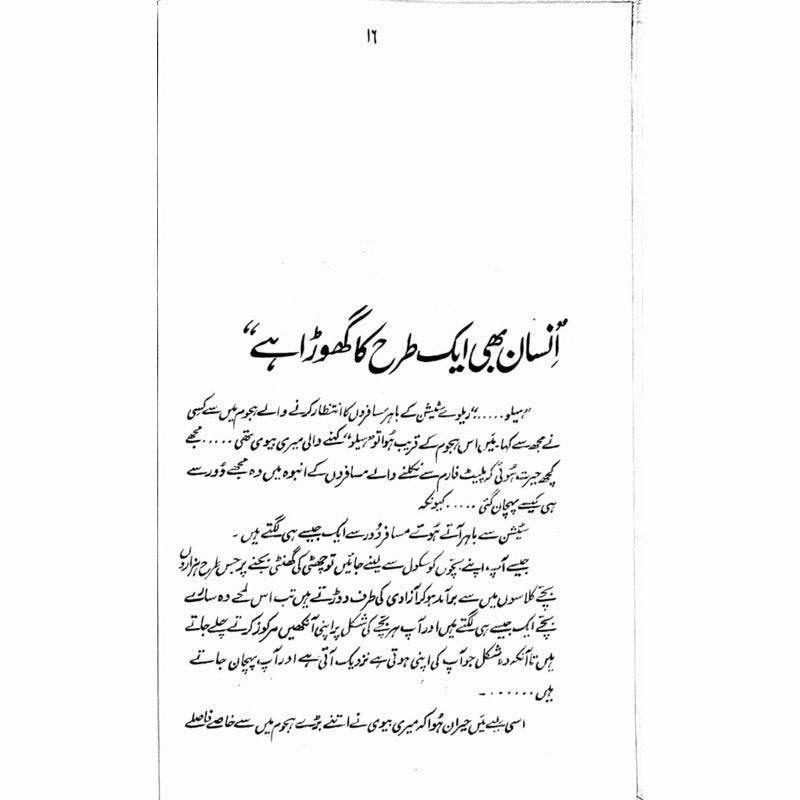 ۱۶
”اِنسان بھی ایک طرح کا گھوڑا ہے“
”ہیلو.....“ ریلوے سٹیشن کے باہر مُسافروں کا انتظار کرنے والے ہجوم میں سے کسی
نے مجھ سے کہا۔ میَں اس ہجوم کے قریب ہُوا تو ”ہیلو“ کہنے والی میری بیوی تھی ..... مجھے
کچھ حیرت ہُوئی کہ پلیٹ فارم سے نکلنے والے مسافروں کے انبوہ میں وہ مجھے دُور سے
ہی کیسے پہچان گئی ..... کیونکہ
سٹیشن سے باہر آتے ہُوئے مسافر دُور سے ایک جیسے ہی لگتے ہیں۔
جیسے آپ، اپنے بچّوں کو سکول سے لینے جائیں تو چھٹی کی گھنٹی بجنے پر جس طرح ہزاروں
بچّے کلاسوں میں سے برآمد ہو کر آزادی کی طرف دوڑتے ہیں تب اس لمحے وہ سارے
بچّے ایک جیسے ہی لگتے ہیں اور آپ ہر بچّے کی شکل پر اپنی آنکھیں مرکوز کرتے چلے جاتے
ہیں تا آنکہ وہ شکل جو آپ کی اپنی ہوتی ہے نزدیک آتی ہے اور آپ پہچان جاتے
ہیں ......۔
اسی لیے میَں حیران ہُوا کہ میری بیوی نے اتنے بڑے ہجوم میں سے خاصے فاصلے